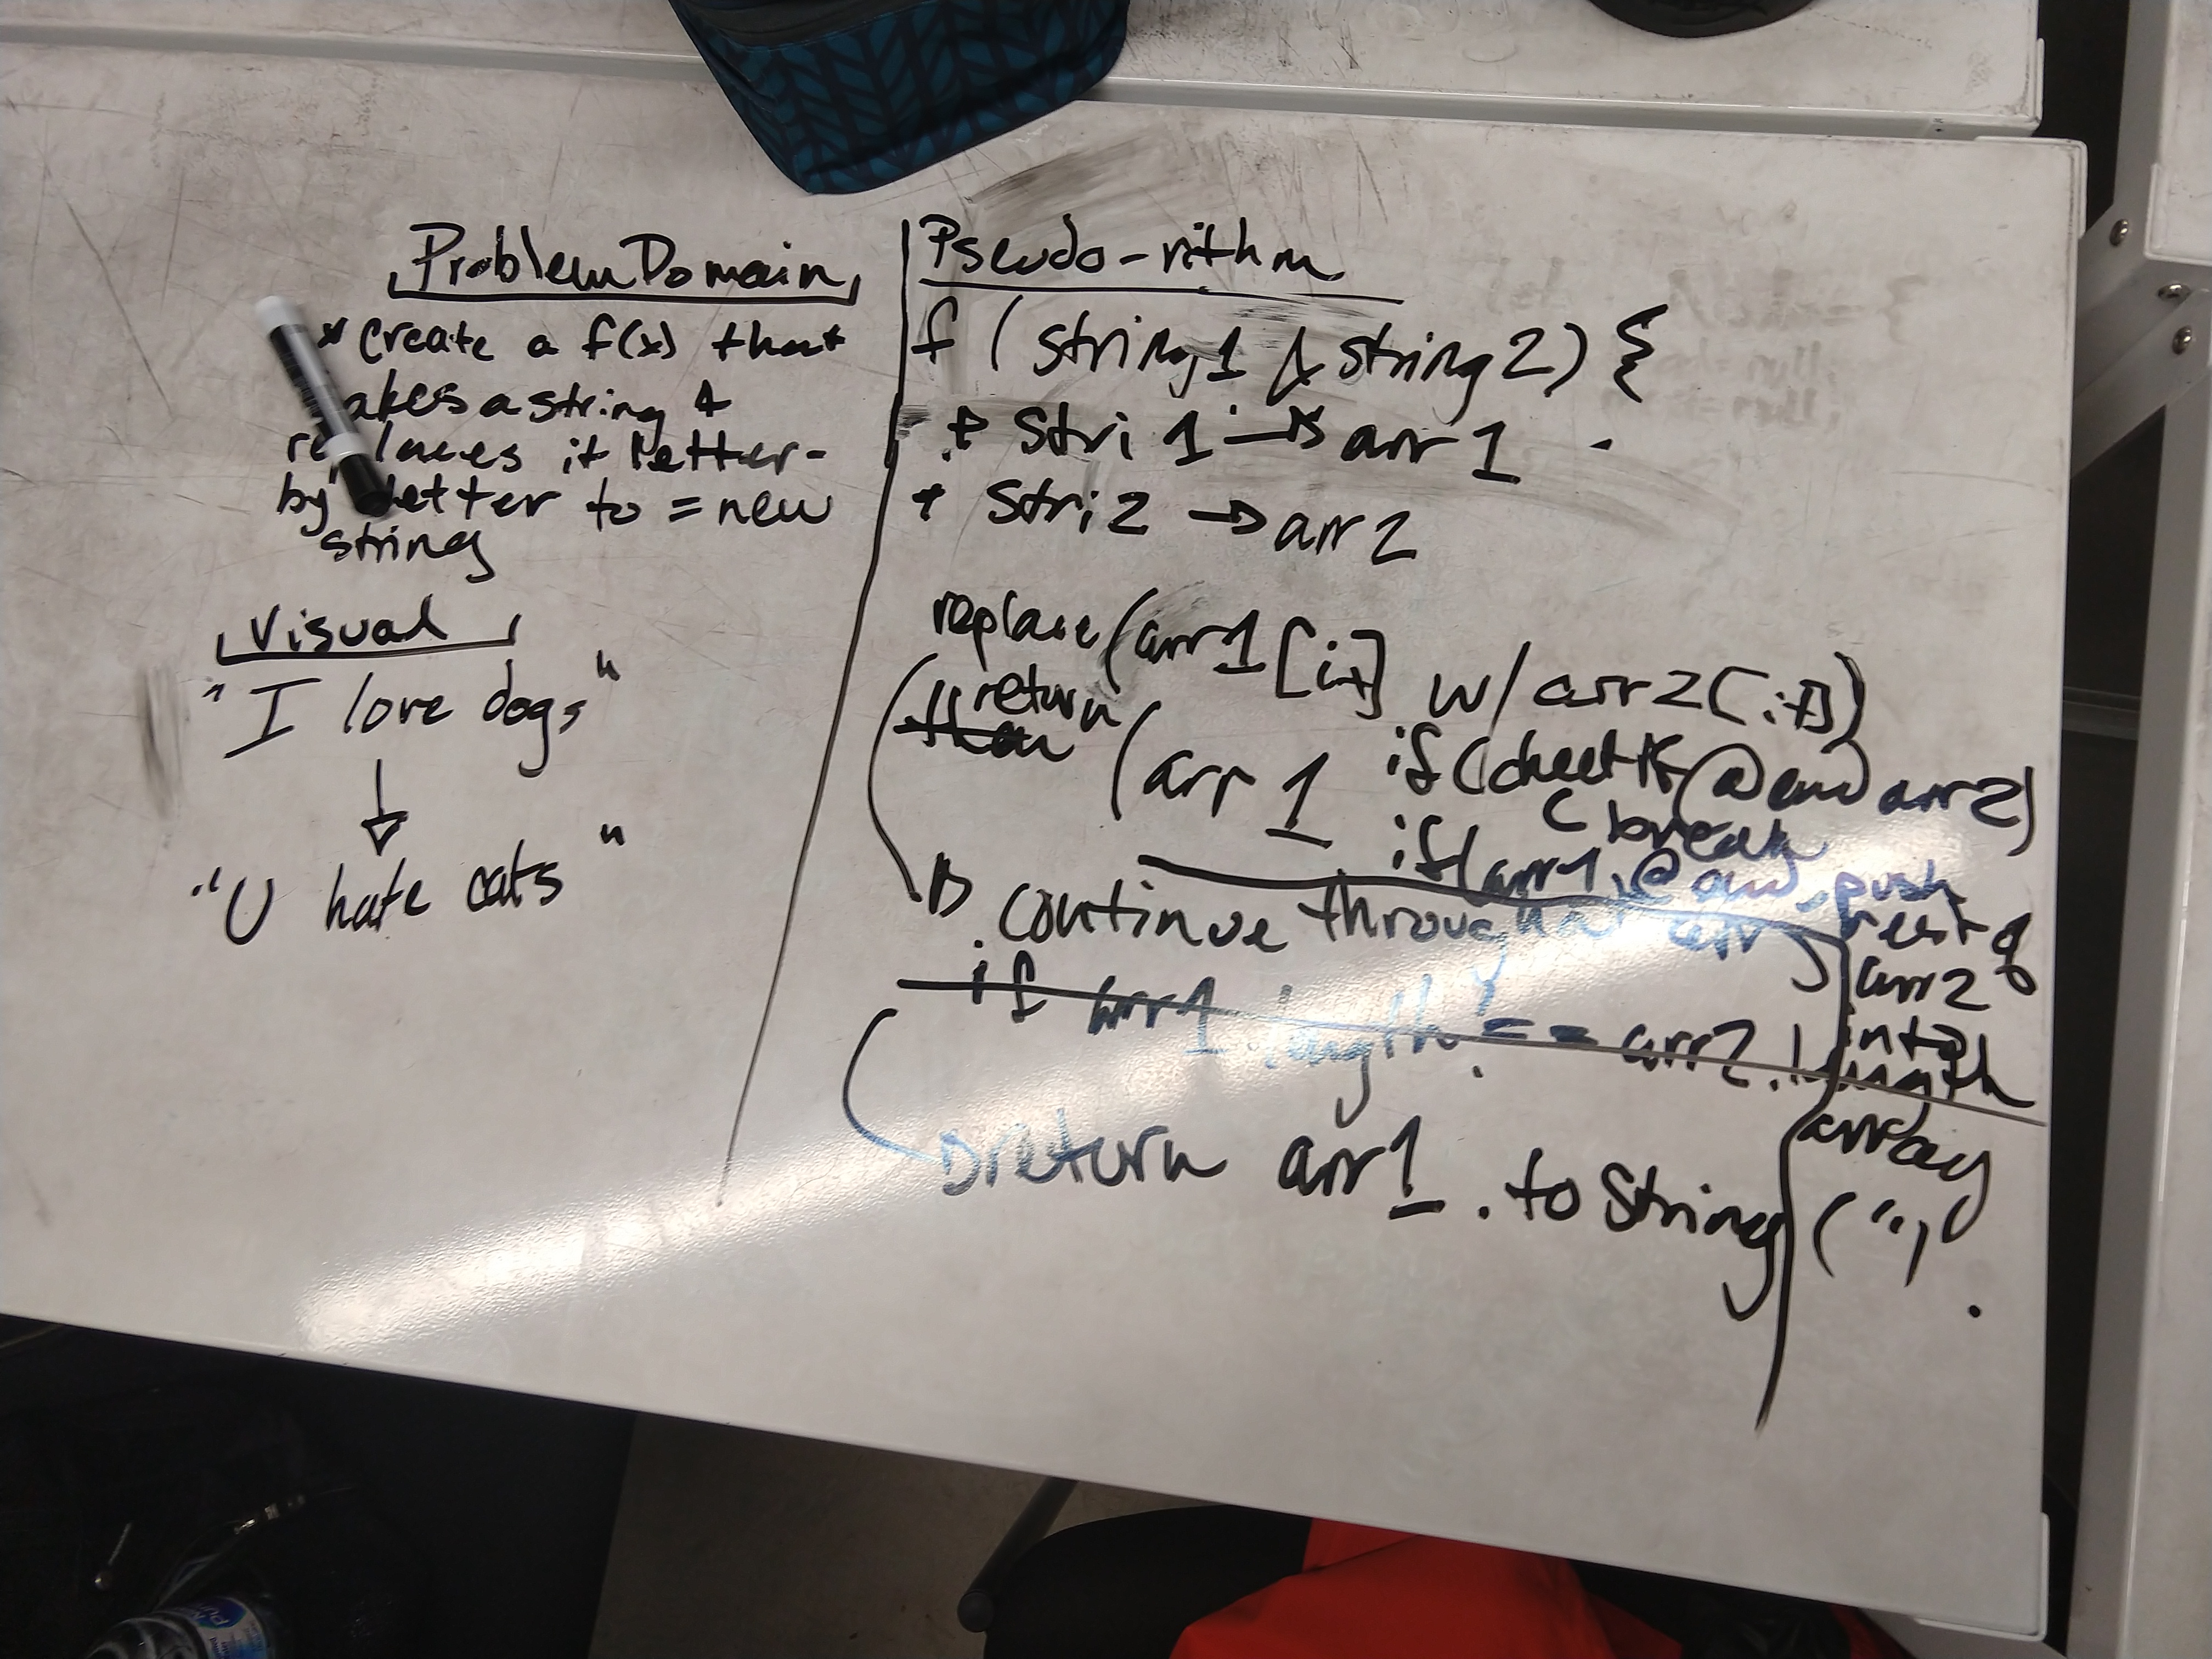 Problem Domain
* Create a f(x) that
akes a string &
re laces it letter-
by letter to = new
string
Visual
"I love dogs"
"U hate cats"
Pseudo-rithm
f (string1 & string2) {
* Stri 1 → arr 1
* Stri 2 → arr 2
replace (arr1[i+] w/ arr2[i+])
return
then (arr 1
if (check @ end arr2)
(break
if (arr1 @ end, push
rest of
arr2
into
array
continue through array
if arr1.length == arr2.length
return arr1.toString("")